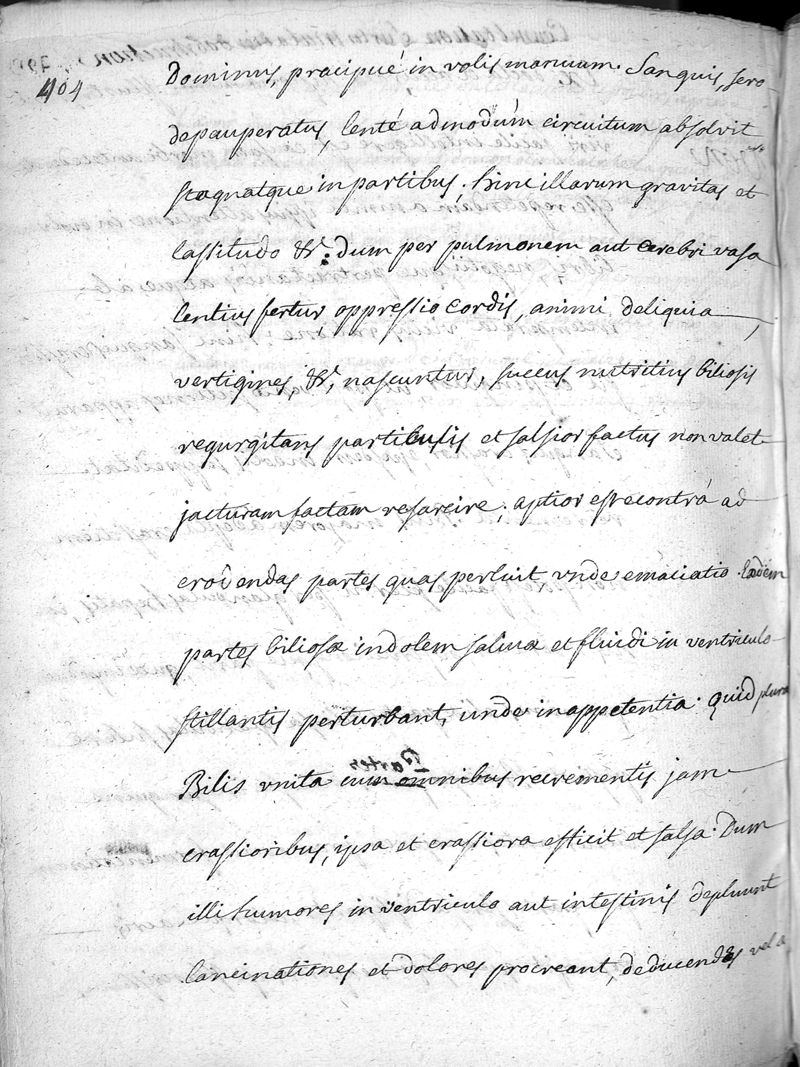 404
Dominus, præcipué in volis manuum. Sanquis, sero-
depauperatus, lenté admodùm circuitum absolvit
stagnatque in partibus; hinc illarum gravitas et
lassitudo &c: dum per pulmonem aut cerebri vasa
lentius fertur, oppressio cordis, animi deliquia,
vertigines, &c, nascuntur, succus nutritius biliosis
regurgitans partibusis et salsior factus non valet
jacturam factam resarcire; aptior est econtrà ad
erodendas partes quas perluit unde emaciatio. Eædem
partes biliosæ indolem salivæ et fluidi in ventriculo
stillantis perturbant, unde inappetentia. quid plura
Bilis unita cum omnibus recrementis jam
crassioribus, ipsa et crassiora efficit et salsa. Dum
illi humores in ventriculo aut intestinis depluunt
lancinationes et dolores procreant, deducendes vel a